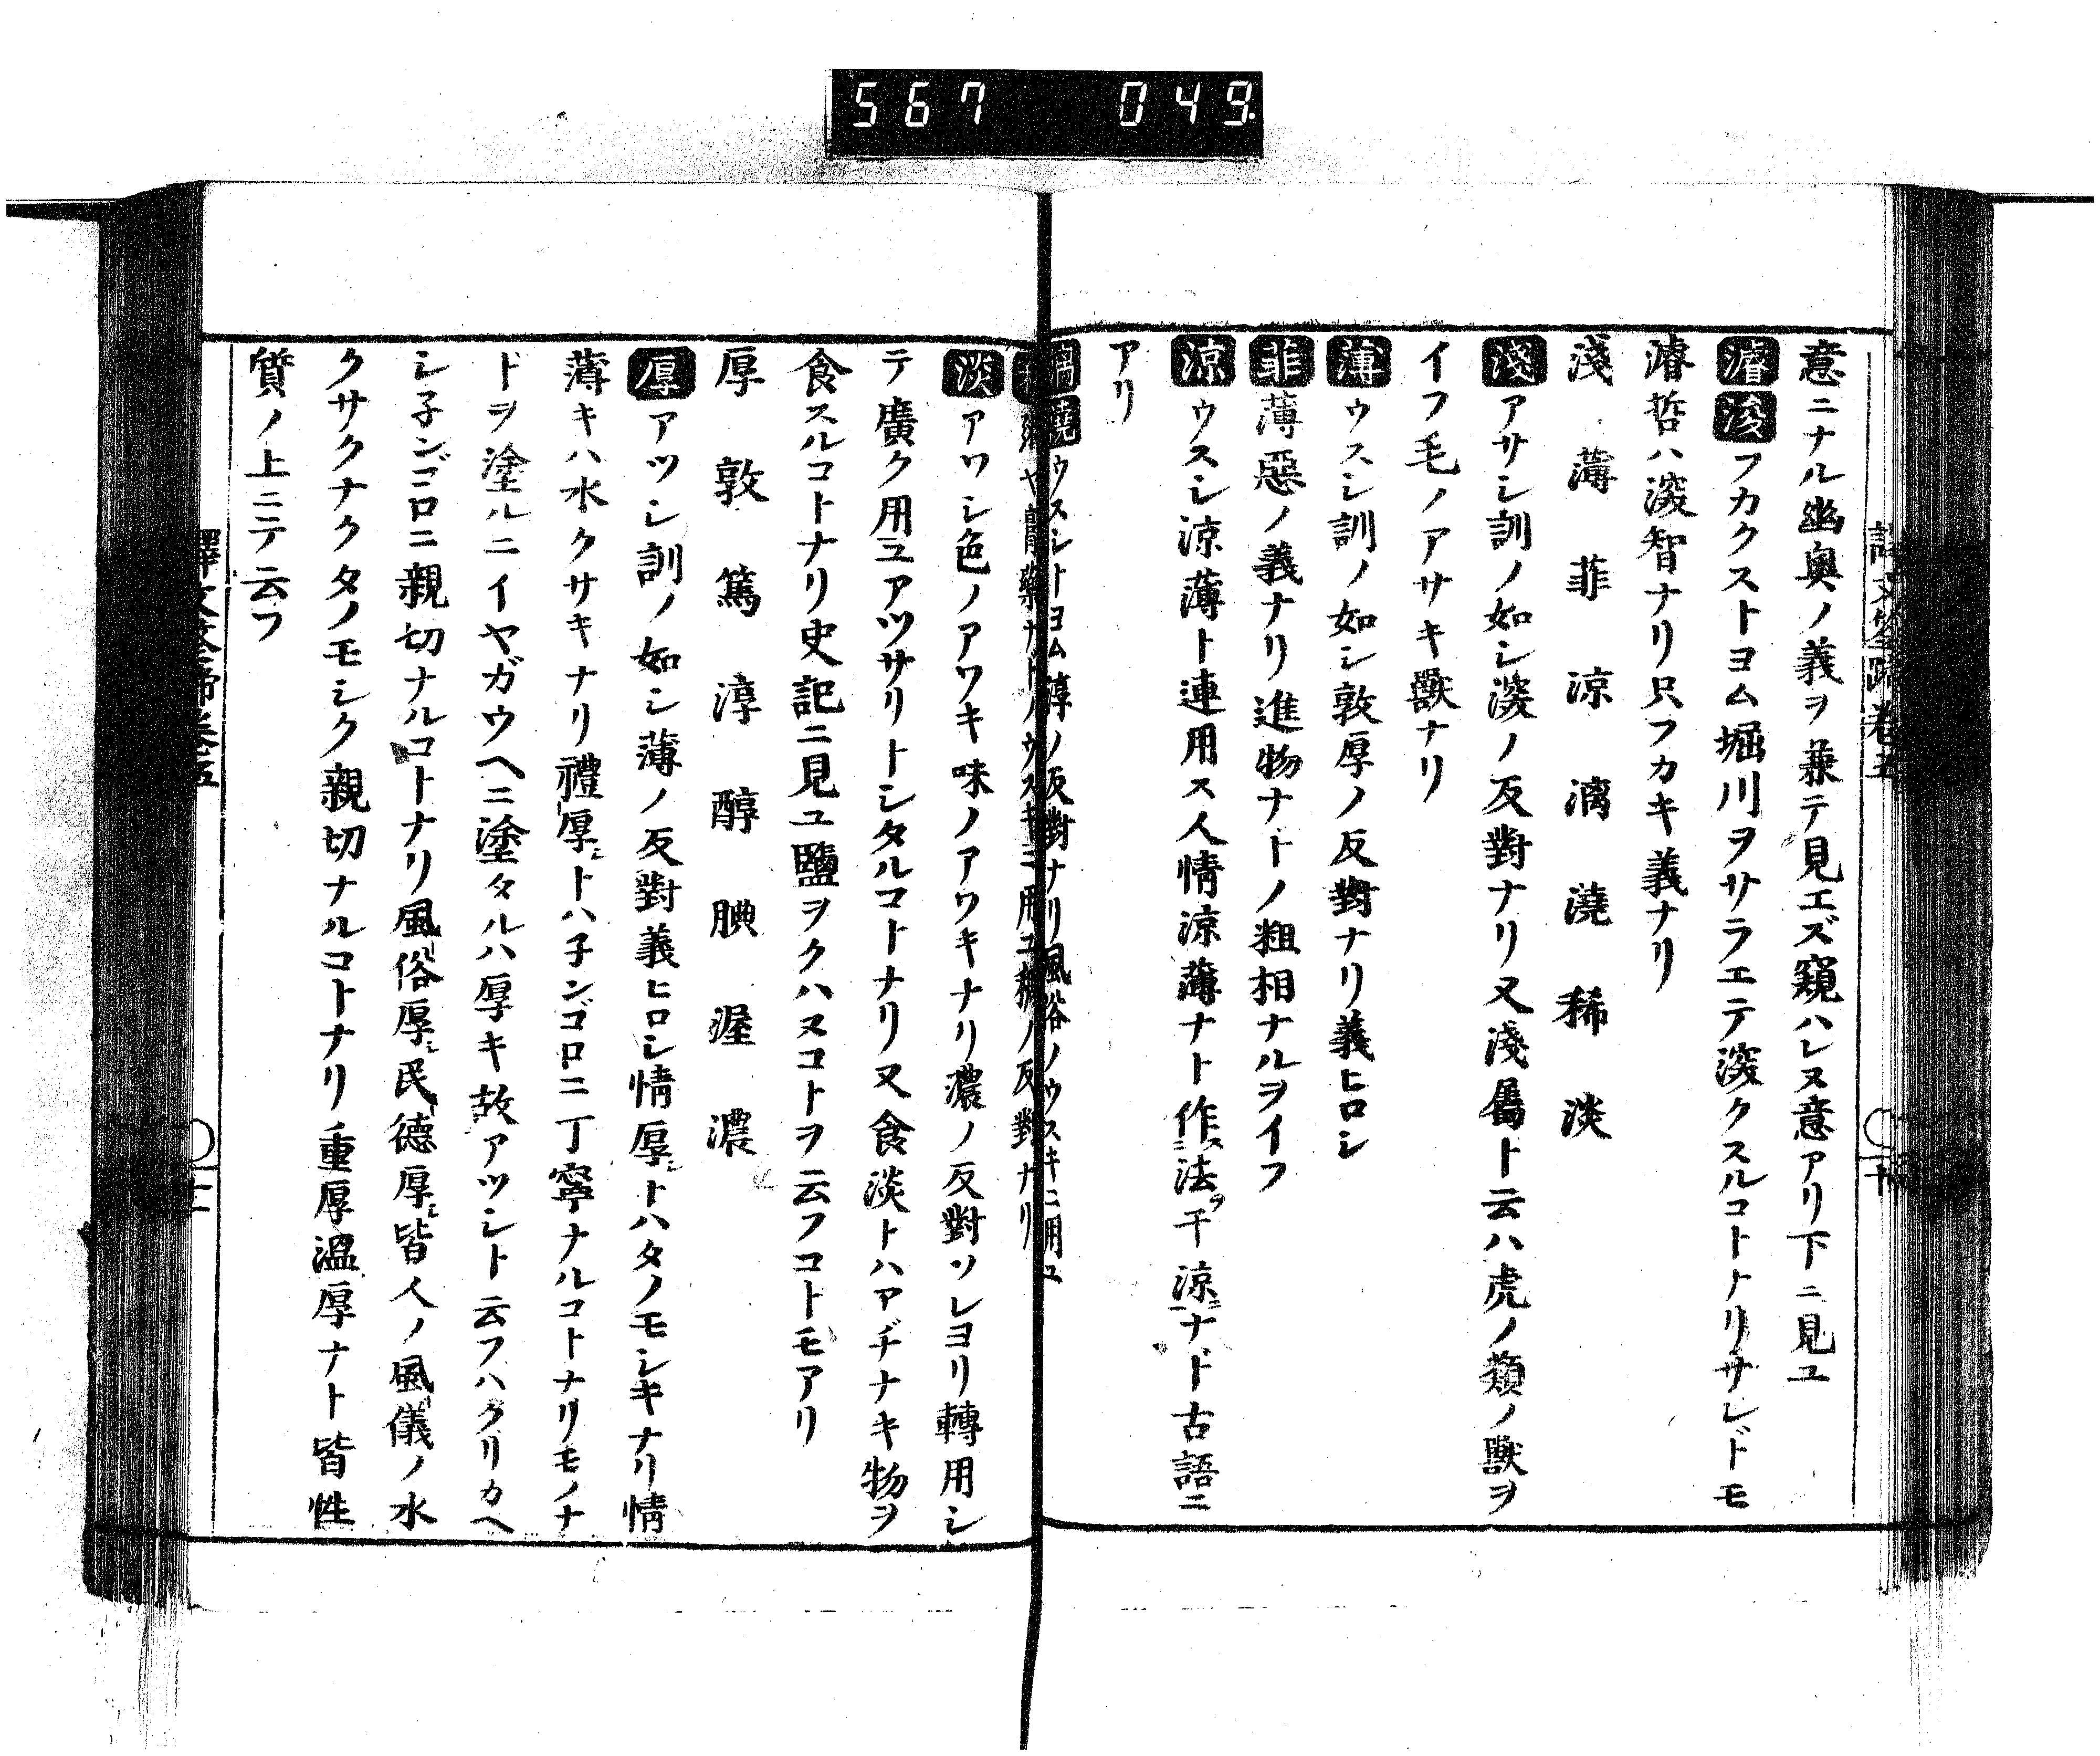 567 049
意ニナル幽奥ノ義ヲ兼テ見エズ窺ハレヌ意アリ下ニ見ユ
濬浚フカクストヨム堀川ヲサラエテ深クスルコトナリサレドモ
濬哲ハ深智ナリ只フカキ義ナリ
淺薄菲涼漓澆稀淡
淺アサシ訓ノ如シ深ノ反對ナリ又淺毛ト云ハ虎ノ類ノ獸ヲ
イフ毛ノアサキ獸ナリ
薄ウスシ訓ノ如シ敦厚ノ反對ナリ義ヒロシ
菲薄惡ノ義ナリ進物ナトノ粗相ナルヲイフ
涼ウスシ涼薄ト連用ス人情涼薄ナト作法ヲ干涼ニナド古語ニ
アリ
漓澆ウスシトヨム醇ノ反對ナリ風俗ノウスキニ用ユ
ノウスキニ用ユ穠ノ反對ナリ
淡アワシ色ノアワキ味ノアワキナリ濃ノ反對ソレヨリ轉用シ
テ廣ク用ユアツサリトシタルコトナリ又食淡トハアヂナキ物ヲ
食スルコトナリ史記ニ見ユ鹽ヲクハヌコトヲ云フコトモアリ
厚敦篤淳醇腆渥濃
厚アツシ訓ノ如シ薄ノ反對義ヒロシ情厚シトハタノモシキナリ情
薄キハ水クサキナリ禮厚シトハ子ンゴロニ丁寧ナルコトナリモノナ
ドヲ塗ルニイヤガウヘニ塗タルハ厚キ故アツシト云フハクリカヘ
シ子ンゴロニ親切ナルコトナリ風俗厚シ民德厚シ皆人ノ風儀ノ水
クサクナクタノモシク親切ナルコトナリ重厚溫厚ナト皆性
質ノ上ニテ云フ